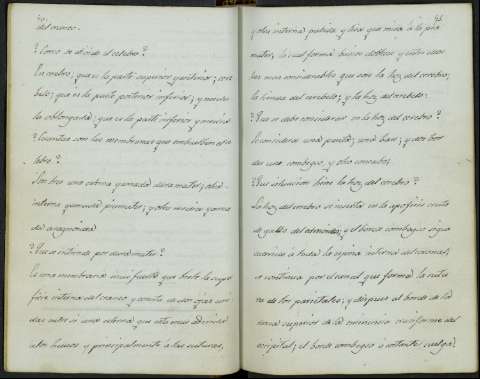 del craneo.
? Como se divide el celebro?
En celebro, que es la parte superior y anterior; cere
belo; que es la parte posterior inferior; y medula
la oblongada; que es la parte inferior y media
? Cuantas son las membranas que embuelben el ce
lebro?
Son tres una externa llamada dura mater; otra
interna llamada piamater; y otra media llama
da aragnoides
? Que se entiende por dura mater?
Es una membrana mui fuerte que biste la supe
ficie interna del craneo y consta de dos
una externa que esta mas adherida
a los huesos y principalmente a las suturas,
43
y otra interna pulida y lisa que mira a la pia
mater, la cual forma barios dobleces y entre ellos
los mas considerables que son la hoz del cerebro,
la tienda del cerebelo, y la hoz del cerebelo.
? Que se debe considerar en la hoz del celebro?
Se considera una punta, una base, y dos bor
des uno combejo, y otro concabo.
? Que situacion tiene la hoz del celebro?
La hoz del celebro se inserta en la apofisis cresta
de gallo del etmoides, y el borde combejo sigue
a toda la espina interna del coronal,
se continua por el canal que forma la sutu
ra de los parietales, y despues al borde de la
superior de la eminencia cruciforme del
ocipital; el borde combejo o cortante cuelga